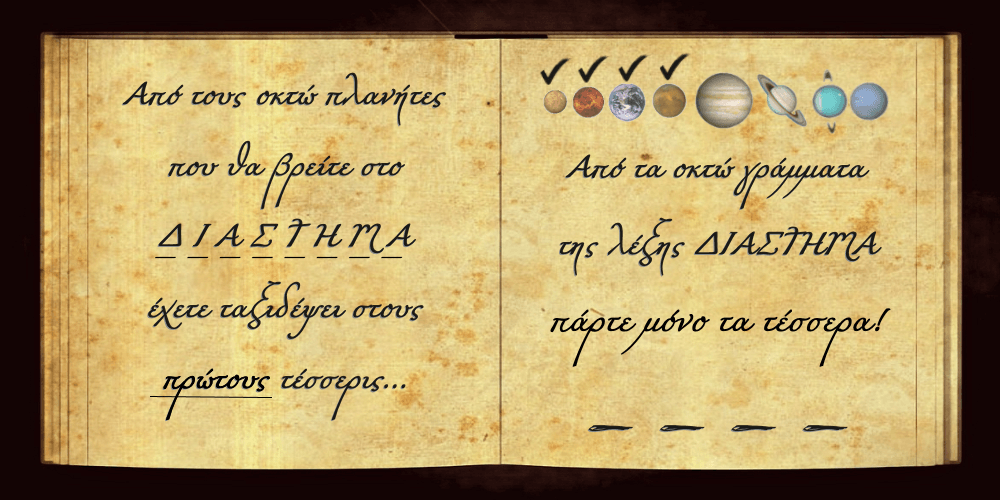 Από τους οκτώ πλανήτες
που θα βρείτε στο
ΔΙΑΣΤΗΜΑ
έχετε ταξιδέψει στους
πρώτους τέσσερις...
Από τα οκτώ γράμματα
της λέξης ΔΙΑΣΤΗΜΑ
πάρτε μόνο τα τέσσερα!